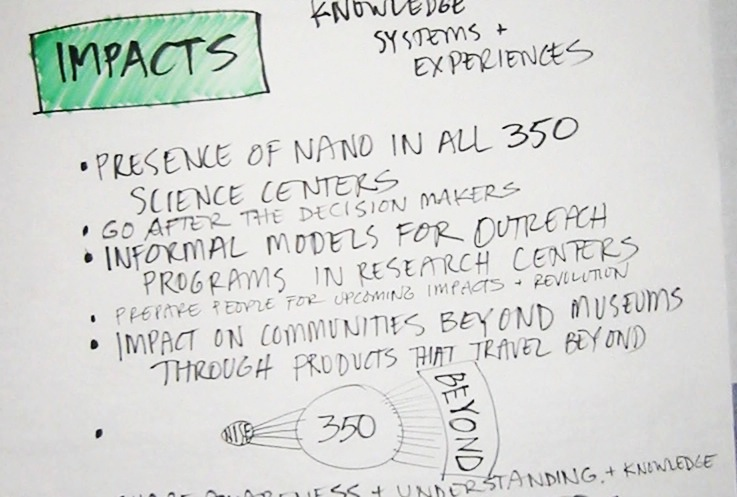 KNOWLEDGE
SYSTEMS +
EXPERIENCES
IMPACTS
• PRESENCE OF NANO IN ALL 350
SCIENCE CENTERS
• GO AFTER THE DECISION MAKERS
• INFORMAL MODELS FOR OUTREACH
PROGRAMS IN RESEARCH CENTERS
• PREPARE PEOPLE FOR UPCOMING IMPACTS + REVOLUTION
• IMPACT ON COMMUNITIES BEYOND MUSEUMS
THROUGH PRODUCTS THAT TRAVEL BEYOND
• NISE 350 BEYOND
AWARENESS + UNDERSTANDING. + KNOWLEDGE